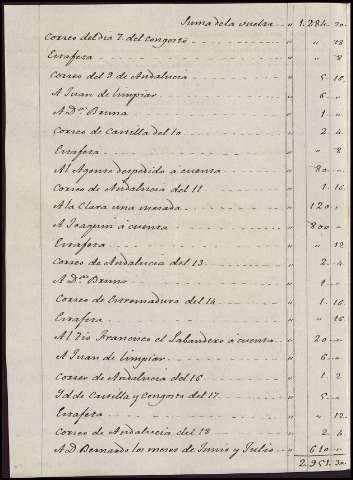 Suma de la vuelta - - " 1.284. 30.
Correo del dia 7. del Congosto - - " " 28
Errafera - - " " 8
Correo del 9 de Andalucia - - " 5. 18.
A Juan de limpiar - - " 6 "
A Dn. Bruno - - " 1 "
Correo de Castilla del 10 - - " 2. 4
Errafera - - " " 8
Al Agente despedido a cuenta - - " 80 "
Correo de Andalucia del 11 - - " 1. 16
A la Clara una mesada - - " 120 "
A Joaquin á cuenta - - " 800 "
Errafera - - " " 12
Correo de Andalucia del 13 - - " 2. 4
A Dn. Bruno - - " 1 "
Correo de Estremadura del 14 - - " 1. 16
Errafera - - " " 16
Al Tio Francisco el Sabandero á cuenta - - " 20 "
A Juan de limpiar - - " 6 "
Correo de Andalucia del 16 - - " 1. 2
Yd. de Castilla y Congosto del 17 - - " 5 "
Errafera - - " " 12
Correo de Andalucia del 18 - - " 2. 4
A D. Bernardo los meses de Junio y Julio - - " 610 "
2.951. 30.